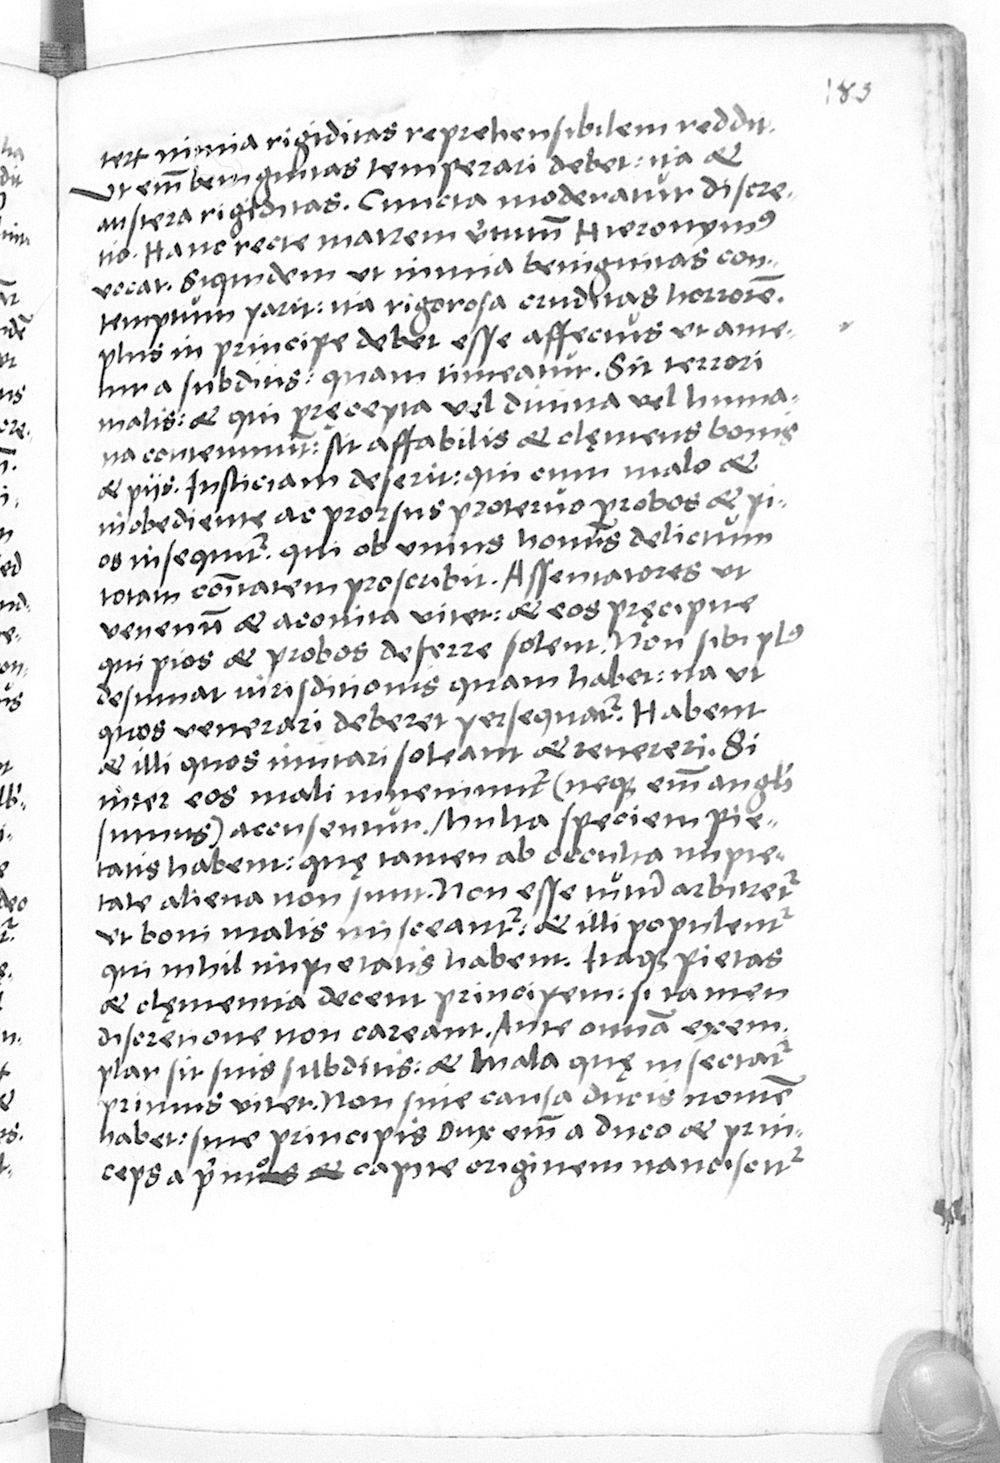 183
tert nimia rigiditas reprehensibilem reddit.
Ut em̄ benignitas temperari debet: ita &
austera rigiditas. Cuncta moderatur discre-
tio. Hanc recte matrem v̄tutū Hieronymꝰ
vocat. Siquidem ut nimia benignitas con-
temptum parit: ita rigorosa cruditas horrorē.
plus in principe debet esse affectus ut ame-
tur a subditis: quam timeatur. Sit terrori
malis: & qui pręcepta vel divina vel huma-
na contemnūt: sit affabilis & clęmens bonis
& piis. Iusticiam deserit: qui cum malo &
inobediente ac prorsus protervo probos & pi-
os insequit᷑. qui ob unius hoīnis delictum
totam cōitatem proscribit. Assentatores ut
venenū & aconita vitet: & eos pręcipue
qui pios & probos deferre solent. Non sibi plꝰ
desumat iurisditionis quam habet: ita ut
quos venerari deberet persequat᷑. Habent
& illi quos imitari soleant & revereri. Si
inter eos mali inveniunt᷑ (neqꝫ em̄ angli
sumus) accusentur. Multa speciem pie-
tatis habent: quę tamen ab occulta impie-
tate aliena non sunt. Non esse tutū arbitret᷑
ut boni malis misceant᷑: & illi populent᷑
qui nihil impietatis habent. Itaqꝫ pietas
& clęmentia decent principem: si tamen
discretione non careant. Ante omīa exem-
plar sit suis subditis: & mala quę insectat᷑
primus vitet. Non sine causa ducis nomē
habet: sive principis Dux em̄ a duco & prin-
ceps a p̄mo & capite originem nanciscit᷑